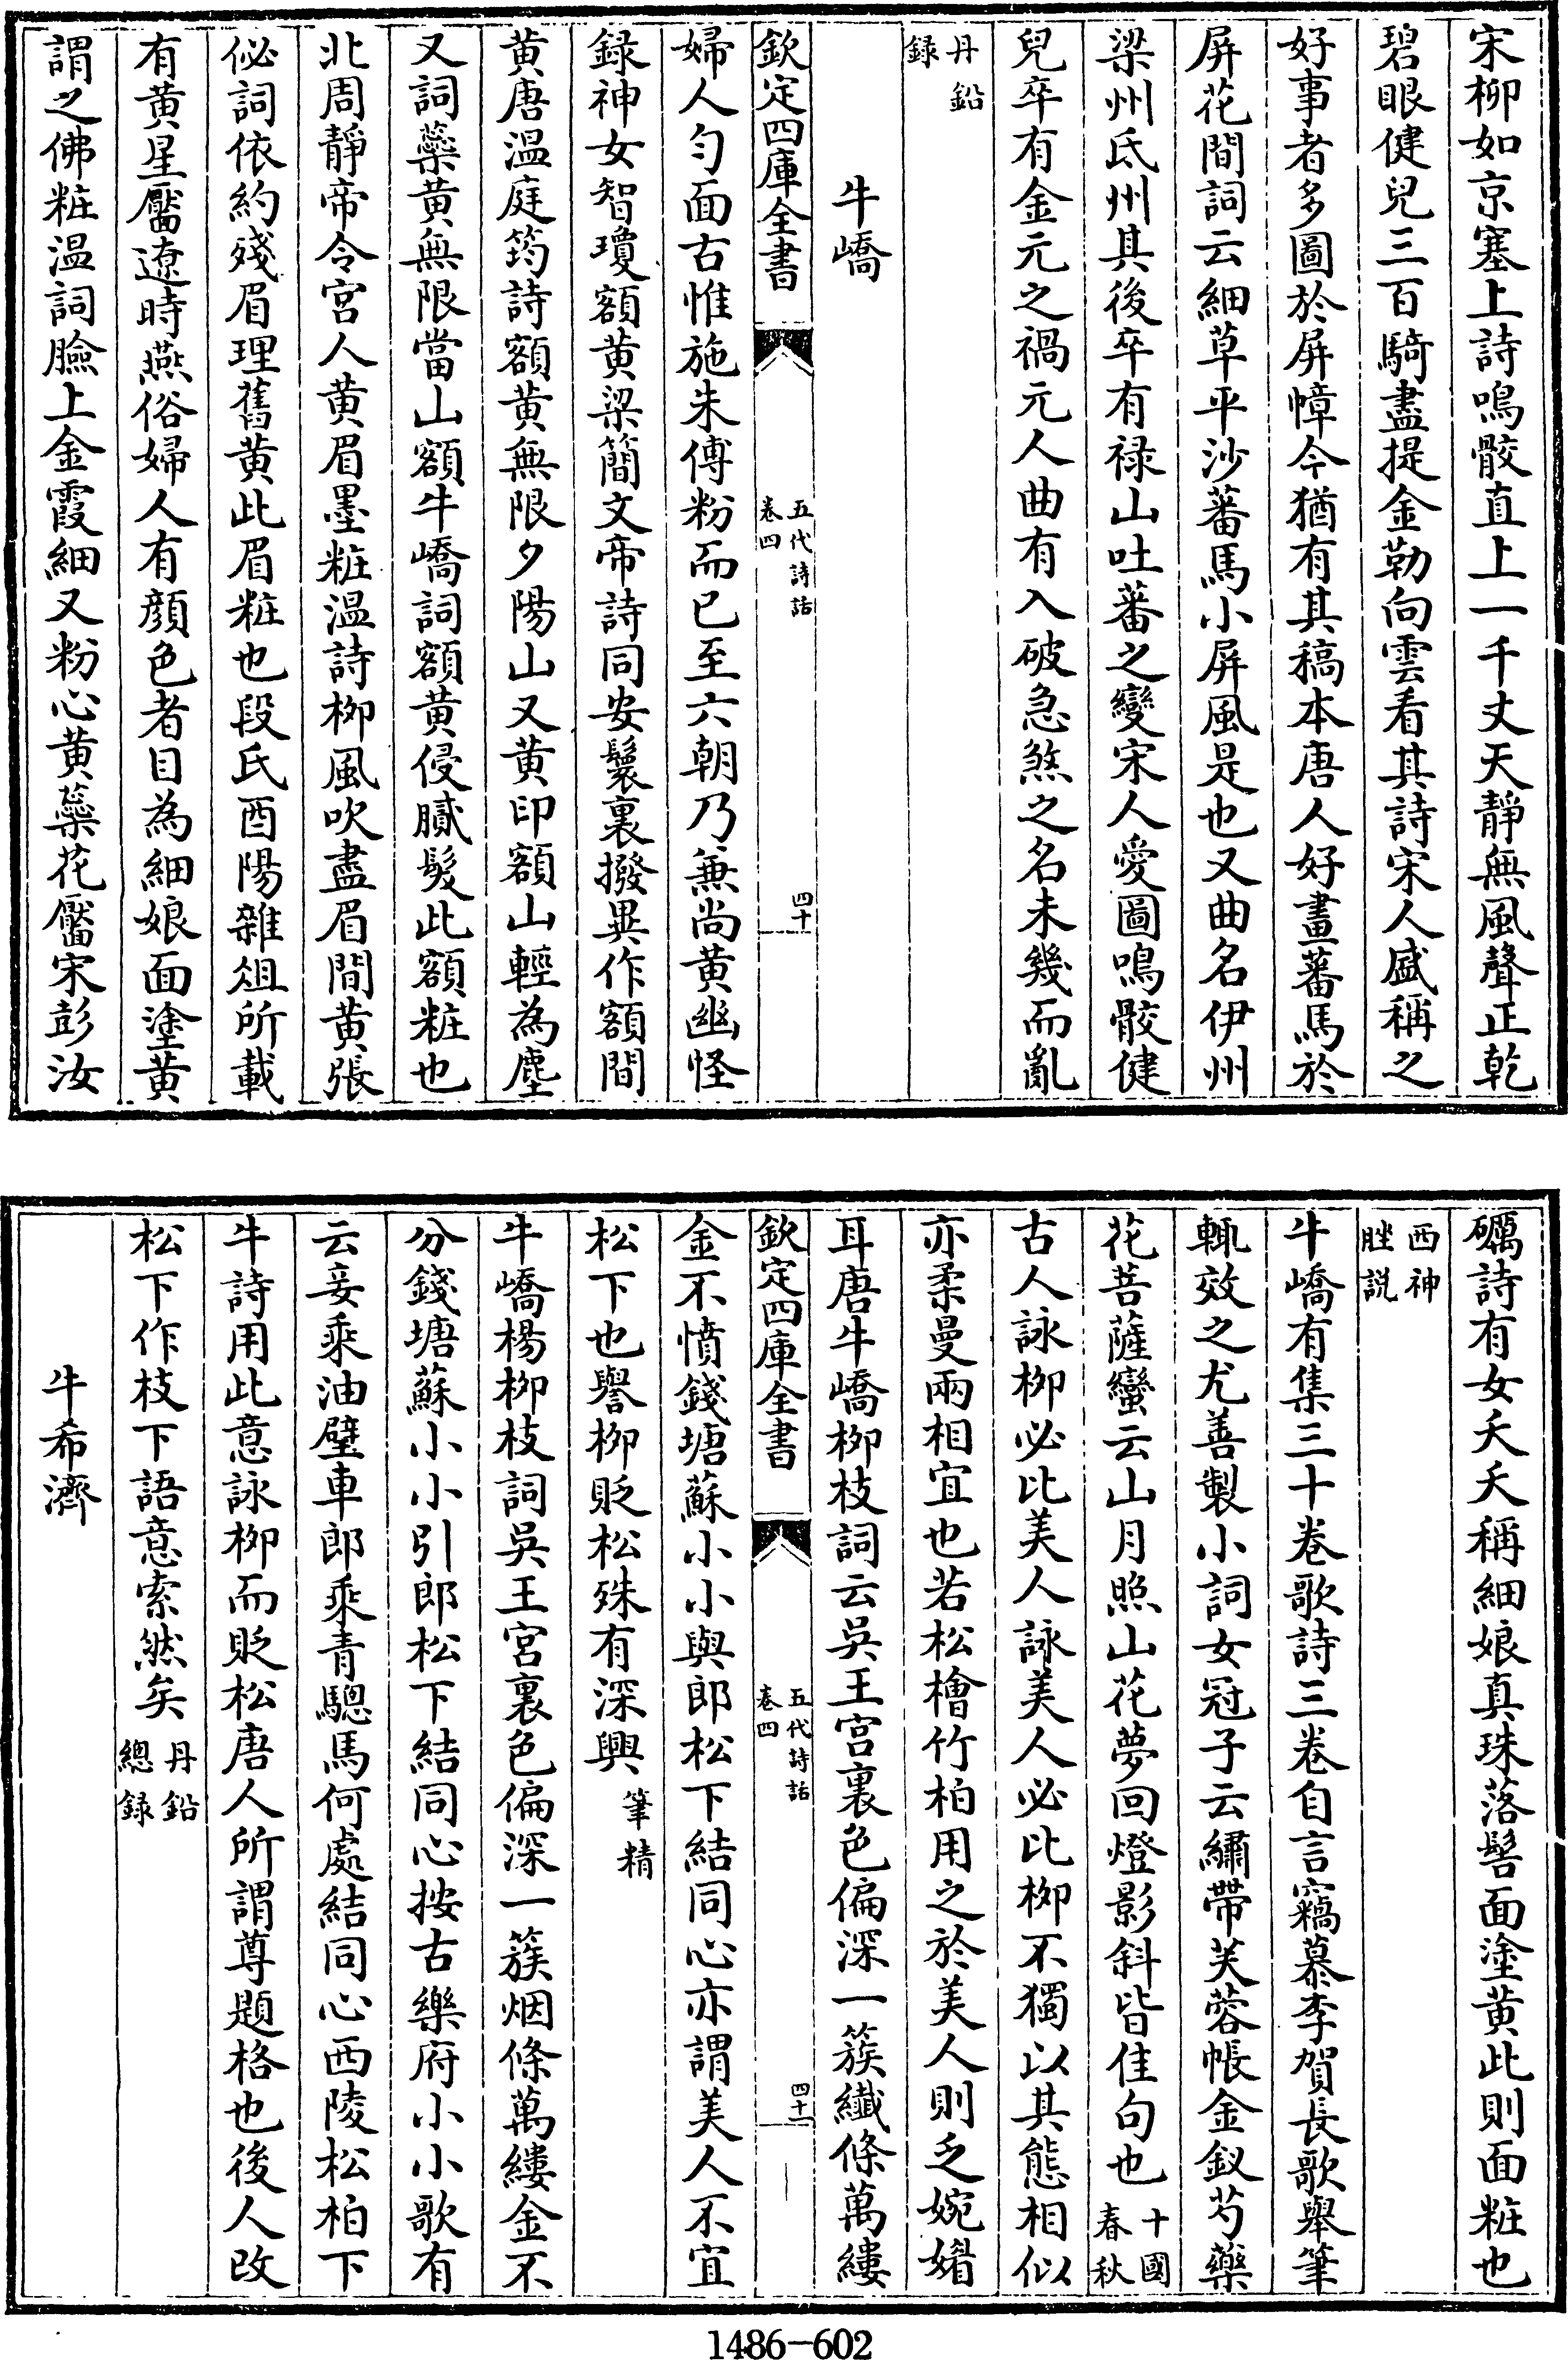 宋柳如京塞上詩鳴骹直上一千丈天靜無風聲正乾
碧眼健兒三百騎盡提金勒向雲看其詩宋人盛稱之
好事者多圖於屏幛今猶有其稿本唐人好畫蕃馬於
屏花間詞云細草平沙蕃馬小屏風是也又曲名伊州
梁州氐州其後卒有禄山吐蕃之變宋人愛圖鳴骹健
兒卒有金元之禍元人曲有入破急煞之名未幾而亂
丹鉛
録
牛嶠
欽定四庫全書
五代詩話
卷四
四十
婦人勻面古惟施朱傅粉而已至六朝乃兼尚黄幽怪
録神女智瓊額黄梁簡文帝詩同安鬟裏撥異作額間
黄唐温庭筠詩額黄無限夕陽山又黄印額山輕為塵
又詞蘂黄無限當山額牛嶠詞額黄侵膩髮此額粧也
北周靜帝令宮人黄眉墨粧温詩栁風吹盡眉間黄張
佖詞依約殘眉理舊黄此眉粧也段氏酉陽雜俎所載
有黄星靨遼時燕俗婦人有顔色者目為細娘面塗黄
謂之佛粧温詞臉上金霞細又粉心黄蘂花靨宋彭汝
礪詩有女夭夭稱細娘真珠落髻面塗黄此則面粧也
西神
脞説
牛嶠有集三十卷歌詩三卷自言竊慕李賀長歌舉筆
輒效之尤善製小詞女冠子云繡帶芙蓉帳金釵芍藥
花菩薩蠻云山月照山花夢回燈影斜皆佳句也
十國
春秋
古人詠栁必比美人詠美人必比栁不獨以其態相似
亦柔曼兩相宜也若松檜竹柏用之於美人則乏婉媚
耳唐牛嶠栁枝詞云吳王宫裏色偏深一簇纖條萬縷
欽定四庫全書
五代詩話
卷四
四十一
金不憤錢塘蘇小小與郎松下結同心亦謂美人不宜
松下也譽栁貶松殊有深興
筆精
牛嶠楊栁枝詞吳王宫裏色偏深一簇烟條萬縷金不
分錢塘蘇小小引郎松下結同心按古樂府小小歌有
云妾乘油壁車郎乘青驄馬何處結同心西陵松柏下
牛詩用此意詠栁而貶松唐人所謂尊題格也後人改
松下作枝下語意索然矣
丹鉛
總録
牛希濟
1486-602